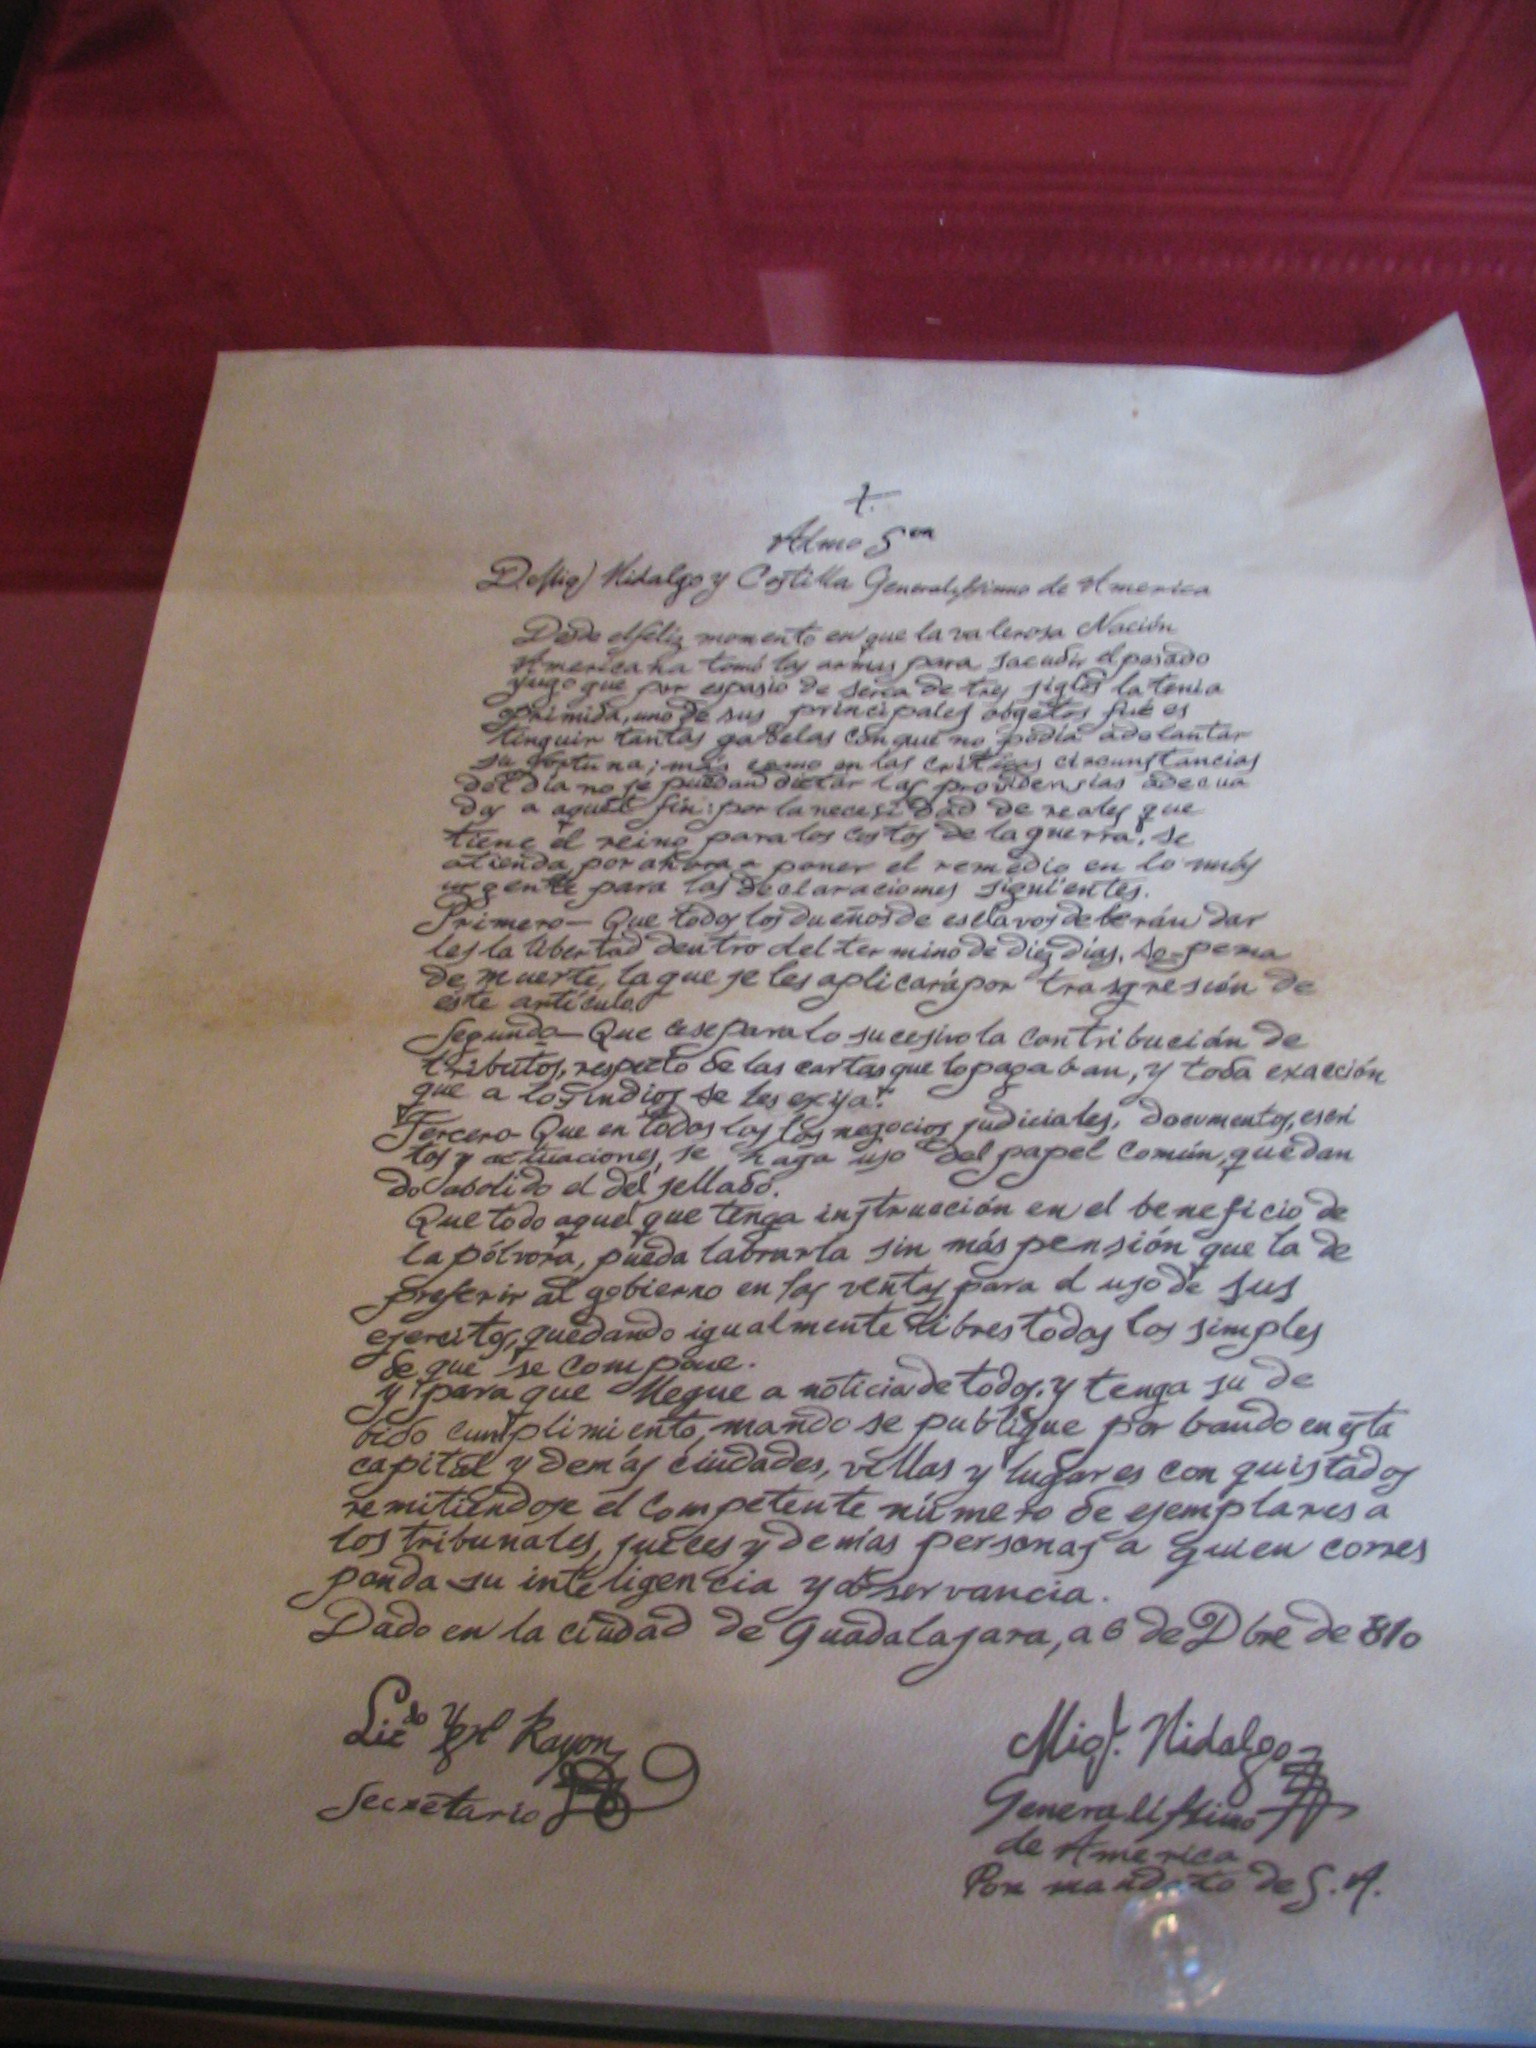 Almo Sor
Dn Miql Hidalgo y Costilla Generalissimo de America
Desde el feliz momento en que la valerosa Nación
Americana tomó las armas para sacudir el pesado
yugo que por espasio de serca de tres siglos la tenia
oprimida, uno de sus principales objetos fué es
tinguir tantas gabelas con que no podía adelantar
su fortuna; más como en las críticas circunstancias
del día no se puedan dictar las providensias adecua
das a aquel fin: por la necesidad de reales que
tiene el reino para los costos de la guerra, se
atienda por ahora a poner el remedio en lo más
urgente para las declaraciones siguientes.
Primero— Que todos los dueños de esclavos deberán dar
les la libertad dentro del termino de diez días, so-pena
de muerte, la que se les aplicará por trasgresión de
éste artículo.
Segundo— Que cese para lo sucesivo la contribución de
tributos, respeto de las cartas que lo pagaban, y toda exacción
que a los indios se les exija.
Tercero- Que en todos los los negocios judiciales, documentos, escri
tos y actuaciones, se haga uso del papel común, quedan
do abolido el del sellado.
Que todo aquel que tenga instrucción en el beneficio de
la pólvora, pueda labrarla sin más pensión que la de
preferir al gobierno en las ventas para el uso de sus
ejercitos, quedando igualmente libres todos los simples
de que se compone.
y para que llegue a noticia de todos, y tenga su de
bido cumplimiento, mando se publique por bando en esta
capital y demás ciudades, villas y lugares conquistados
remitiendose el competente número de ejemplares a
los tribunales, jueces y demás personas a quien corres
ponda su inteligencia y observancia.
Dado en la ciudad de Guadalajara, a 6 de Dbre de 810
Licdo Ygn Rayon
Secretario
Migl. Hidalgo
Generalissimo
de America
Por mandato de S.A.